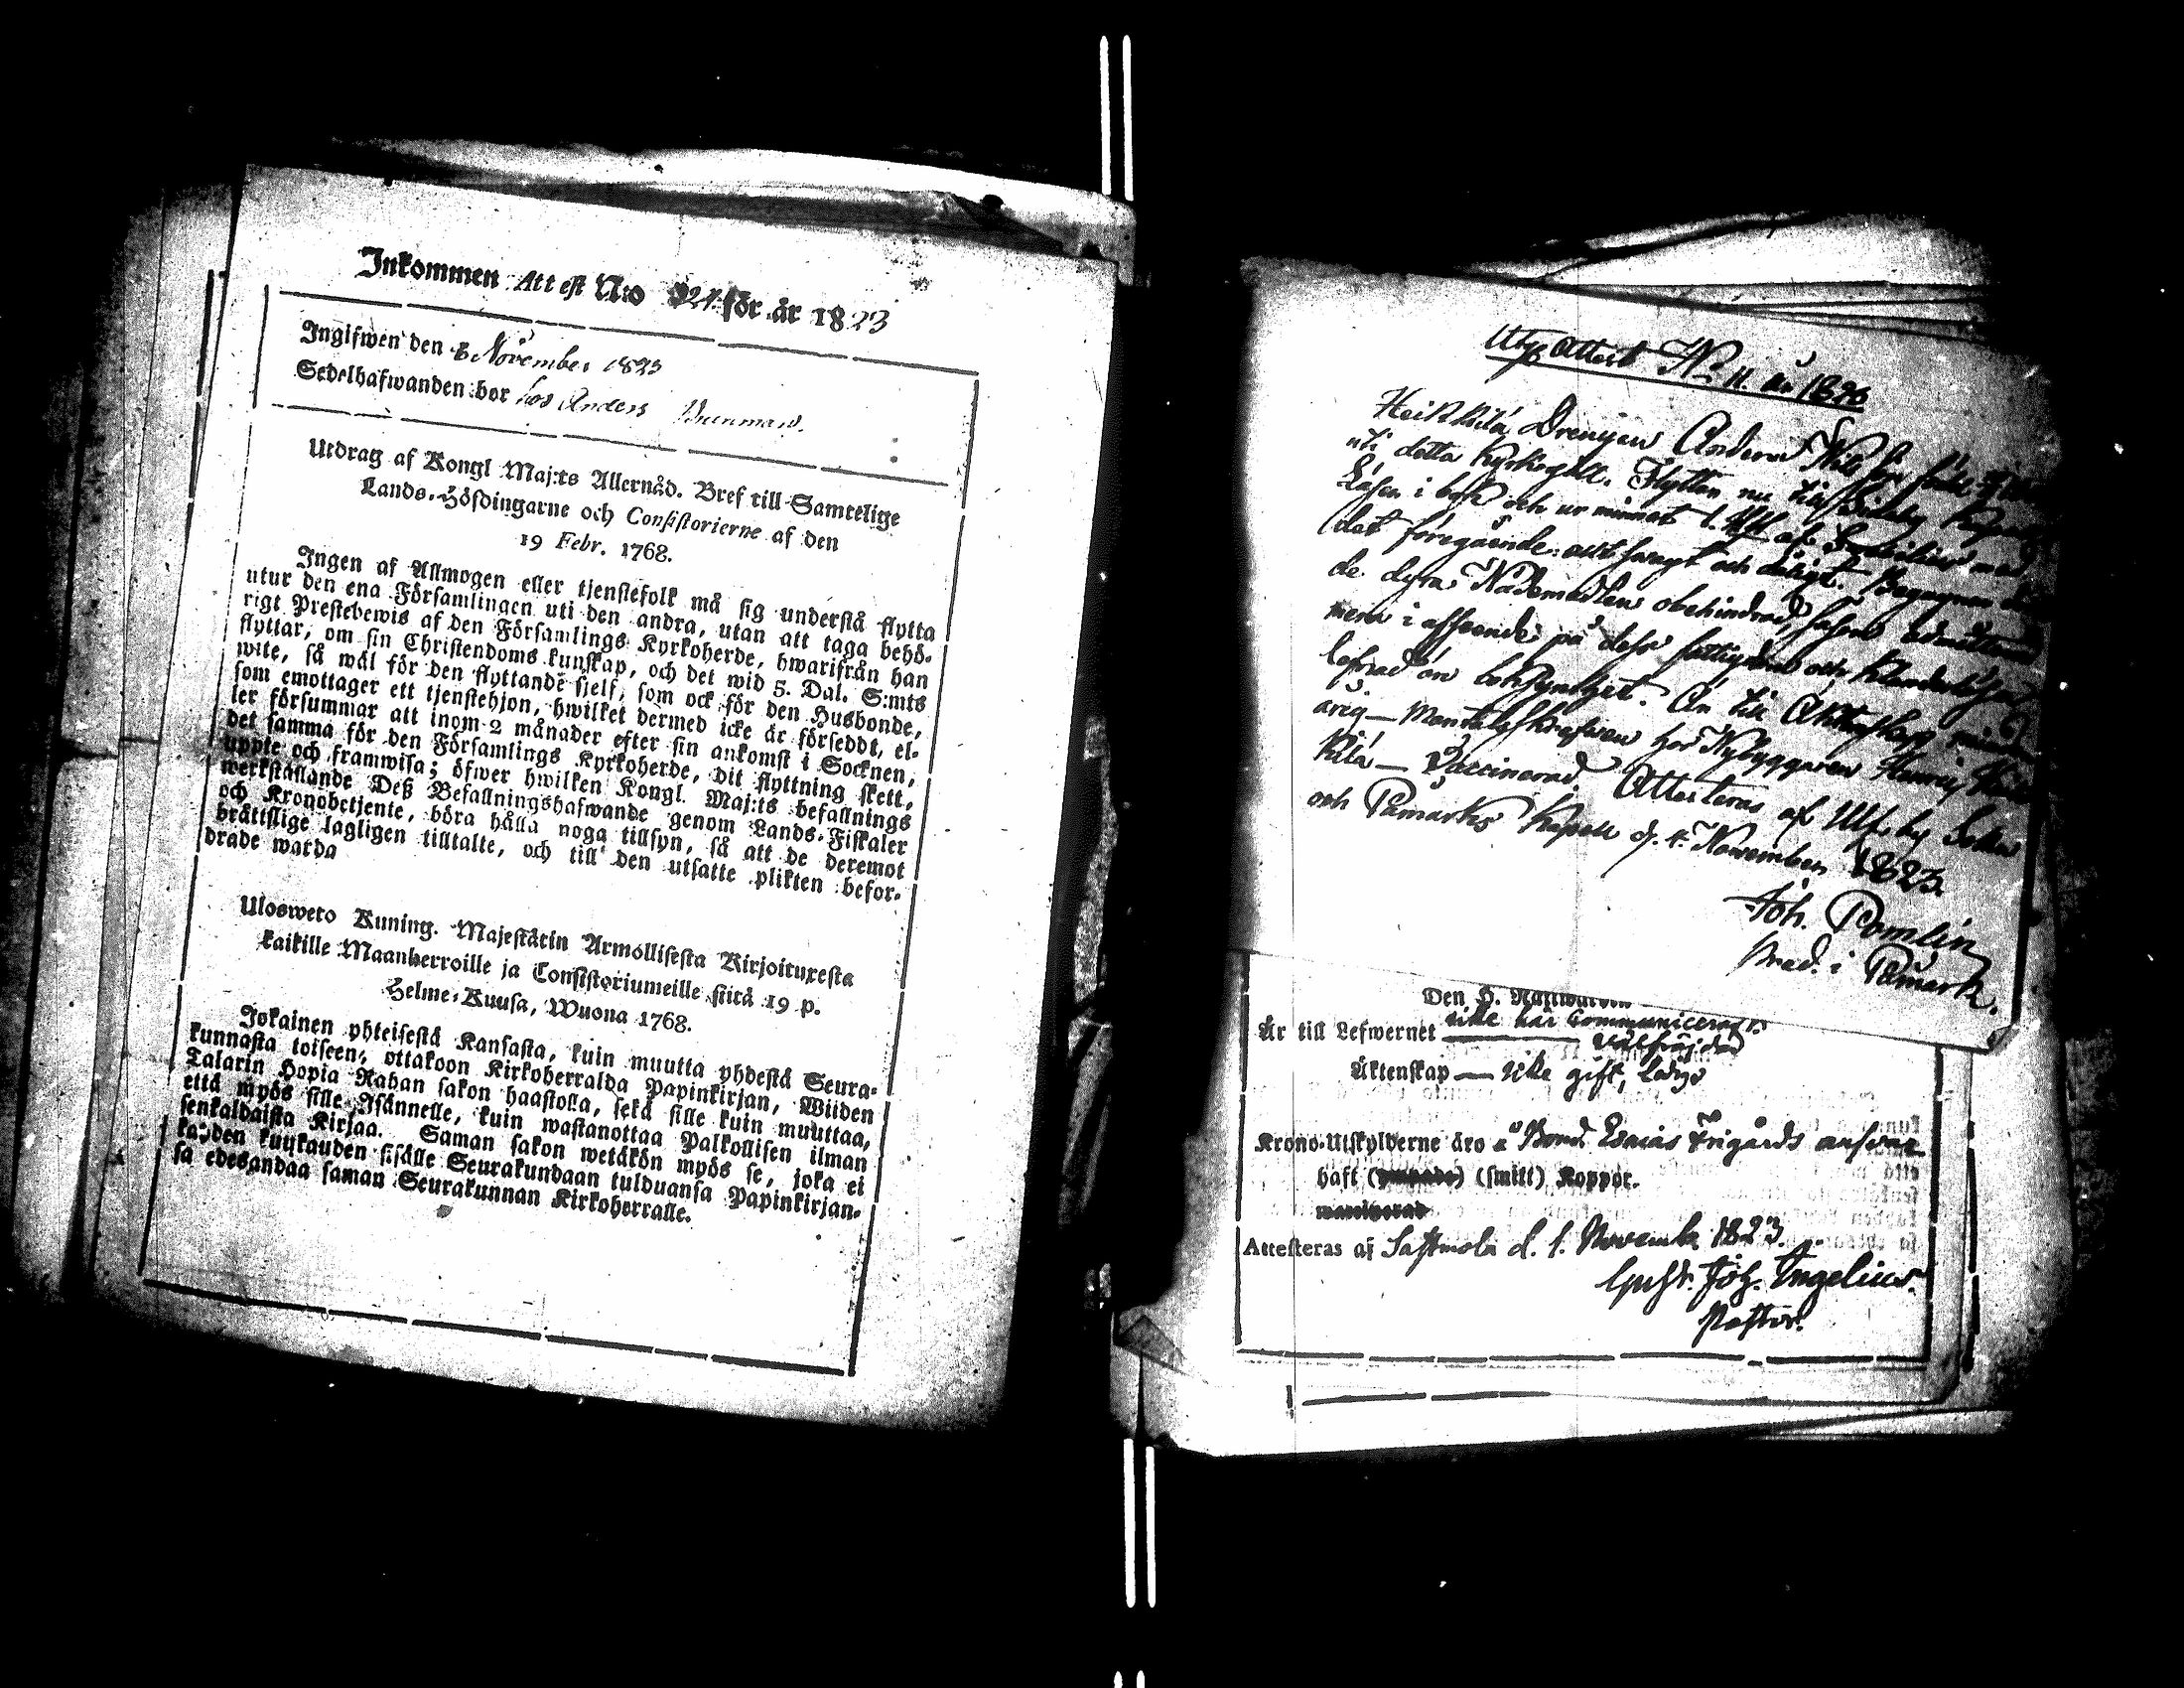 Inkommen Attest N:o 24 för år 1823
Ingifwen den 8 November 1823
Sedelhafwanden bor hos Anders
Utdrag af Kongl Maj:ts Allernåd. Bref till Samtelige
Lands-Höfdingarne och Consistorierne af den
19 Febr. 1768.
Ingen af Allmogen eller tjenstefolk må sig understå flytta
utur den ena Församlingen uti den andra, utan att taga behö-
rigt Prestebewis af den Församlings Kyrkoherde, hwarifrån han
flyttar, om sin Christendoms kunskap, och det wid 5. Dal. S:mts
wite, så wäl för den flyttande sjelf, som ock för den Husbonde,
som emottager ett tjenstehjon, hwilket dermed icke är försedt, el-
ler försummar att inom 2 månader efter sin ankomst i Socknen,
det samma för den Församlings Kyrkoherde, dit flyttning skett,
uppte och framwisa; öfwer hwilken Kongl. Maj:ts befallnings
werkställande Deß Befallningshafwande genom Lands-Fiskaler
och Kronobetjente, böra hålla noga tillsyn, så att de deremot
bråttslige lagligen tilltalte, och till den utsatte plikten befor-
drade warda
Ulosweto Kuning. Majestätin Armollisesta Kirjoituxesta
kaikille Maanherroille ja Consistoriumeille siitä 19 p.
Helme-Kuusa, Wuona 1768.
Jokainen yhteisestä Kansasta, kuin muutta yhdestä Seura-
kunnasta toiseen, ottakoon Kirkoherralda Papinkirjan, Wiiden
Talarin Hopia Rahan sakon haastolla, sekä sille kuin muuttaa,
että myös sille Isännelle, kuin wastanottaa Palkollisen ilman
senkaldaista Kirjaa. Saman sakon wetäkön myös se, joka ei
kahden kuukauden sisälle Seurakundaan tulduansa Papinkirjan-
sa edesandaa saman Seurakunnan Kirkoherralle.
Utg. Attest No 11. år 1823
Heikkilä Drengen Anders Nils
uti detta Kyrkogäll. Flyttar nu till
Läsen i bok och ur minnet l. af med
det föregående: och Begagnar
de dyra Nådemedlen obehindrad,
mera i afseende på dess fattigdom och
lefnad än Än till Äktenskap
årig — Mantalskrefwen hos Nybyggaren Henric
kilä — Vaccinerad. Attesteras af Ulfsby Sokn
och Påmarks Kapell d. 4. November 1823.
Joh. Pomlin
Præd. i Påmark.
Den H. Nattwarden
Är till Lefwernet icke här communicerat.
välfräjdad
Äktenskap — icke gift, ledig
Krono-Utskylderne äro å Bond. Esaias
haft (smitt) Koppor.
Attesteras af Sastmola d. 1. November 1823.
Gust. Joh. Ingelius.
Pastor.